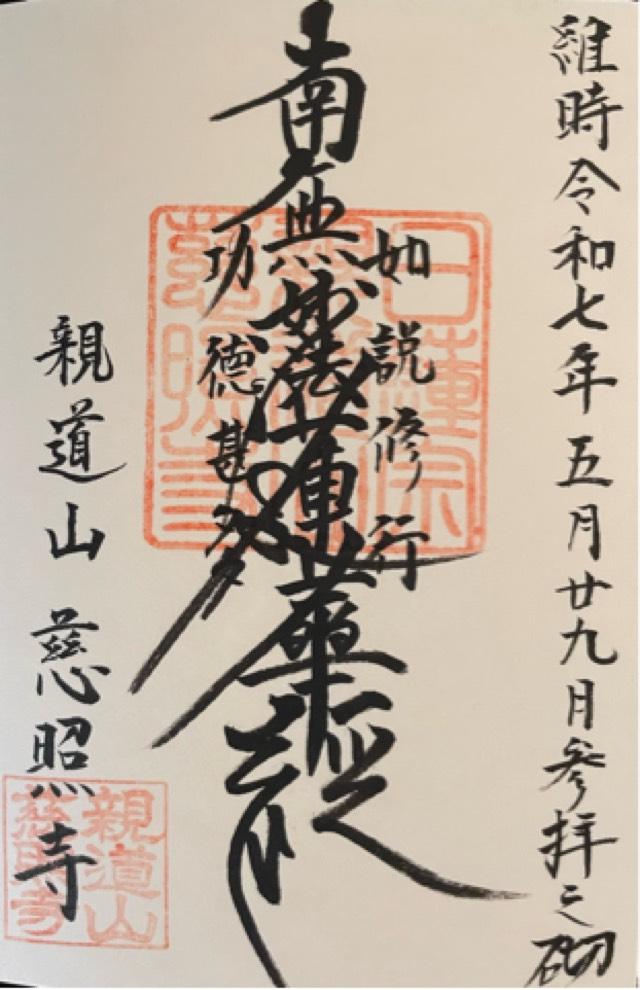 維時令和七年五月廿九月参拝之砌
如説修行
南無妙法蓮華経
功徳甚多
親道山 慈照寺
日蓮宗
慈照寺
親道山
慈照寺